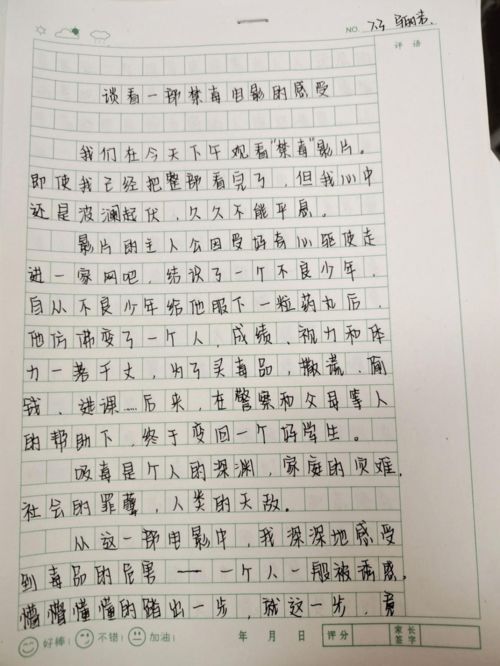 NO. 73
评 语
谈看一部禁毒电影的感受
我们在今天下午观看“禁毒”影片。
即使我已经把整部看完了，但我心中
还是波澜起伏，久久不能平息。
影片的主人公因受好奇心驱使走
进一家网吧，结识了一个不良少年，
自从不良少年给他服下一粒药丸后，
他仿佛变了一个人，成绩、视力和体
力一落千丈，为了买毒品，撒谎、偷
钱、逃课……后来，在警察和父母等人
的帮助下，终于变回一个好学生。
吸毒是个人的深渊，家庭的灾难，
社会的罪孽，人类的天敌。
从这一部电影中，我深深地感受
到毒品的危害——一个人一般被诱惑，
懵懵懂懂的踏出一步，就这一步，竟
好棒！ 不错！ 加油！ 年 月 日 评分 家长签字